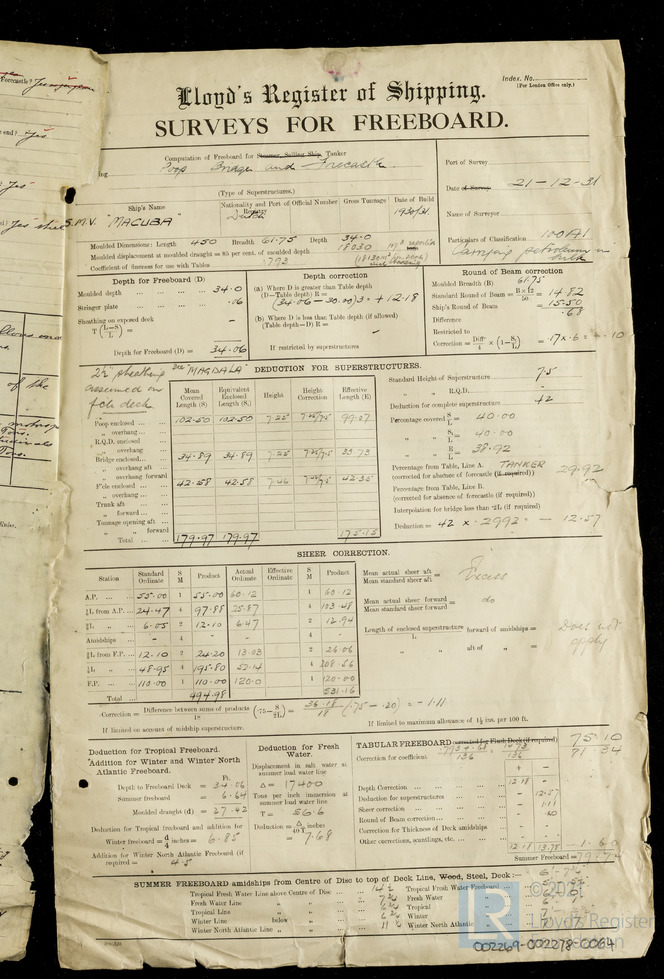 Index. No.
(For London Office only.)
Lloyd's Register of Shipping.
SURVEYS FOR FREEBOARD.
Computation of Freeboard for Steamer, Sailing Ship, Tanker
Poop Bridge and Forecastle.
(Type of Superstructures.)
Port of Survey
Date of Survey 21-12-31
Name of Surveyor
Particulars of Classification 100A1
Carrying petroleum in bulk
Ship's Name
Nationality and Port of Official Number Registry
Gross Tonnage
Date of Build
S.M.V. "MACUBA"
Dutch
1930/31.
Moulded Dimensions: Length 450 Breadth 61.75 Depth 34.0
Moulded displacement at moulded draught = 85 per cent. of moulded depth 18030
Coefficient of fineness for use with Tables .793
Depth for Freeboard (D)
Moulded depth 34.0
Stringer plate .06
Sheathing on exposed deck
T (L-S/L) =
Depth for Freeboard (D) = 34.06
Depth correction
(a) Where D is greater than Table depth
(D-Table depth) R =
(34.06 - 30.00) 3 = + 12.18
(b) Where D is less than Table depth (if allowed)
(Table depth-D) R =
If restricted by superstructures
Round of Beam correction
Moulded Breadth (B) 61.75
Standard Round of Beam = B×12/50 = 14.82
Ship's Round of Beam = 15.50
Difference .68
Restricted to
Correction = Diff/4 × (1-S₁/L) = .17 × .6 = -.10
2½" sheathing
assumed on
fcle deck
See "MAGDALA"
DEDUCTION FOR SUPERSTRUCTURES.
Mean Covered Length (S)
Equivalent Enclosed Length (S₁)
Height
Height Correction
Effective Length (E)
Poop enclosed 102.50 102.50 7.25 7.25/7.5 99.07
" overhang
R.Q.D. enclosed
" overhang
Bridge enclosed 34.89 34.89 7.25 7.25/7.5 33.73
" overhang aft
" overhang forward
F'cle enclosed 42.58 42.58 7.46
" overhang
Trunk aft
" forward
Tonnage opening aft
" " forward
Total 179.97 179.97 175.15
Standard Height of Superstructure 7.5
" " R.Q.D.
Deduction for complete superstructure 42
Percentage covered S/L = 40.00
" " S₁/L = 40.00
" " E/L = 38.92
Percentage from Table, Line A. TANKER 29.92
(corrected for absence of forecastle (if required))
Percentage from Table, Line B.
(corrected for absence of forecastle (if required))
Interpolation for bridge less than ·2L (if required)
Deduction = 42 × .2992 = - 12.57
SHEER CORRECTION.
Station
Standard Ordinate
S M
Product
Actual Ordinate
Effective Ordinate
S M
Product
A.P. 55.00 1 55.00 60.12 1 60.12
⅙L from A.P. 24.47 4 97.88 25.87 4 103.48
⅓L " 6.05 2 12.10 6.47 2 12.94
Amidships - 4 - 4 -
⅓L from F.P. 12.10 2 24.20 13.03 2 26.06
⅙L " 48.95 4 195.80 52.14 4 208.56
F.P. 110.00 1 110.00 120.0 1 120.00
Total 494.98 531.16
Mean actual sheer aft
Mean standard sheer aft = Excess
Mean actual sheer forward
Mean standard sheer forward = do
Length of enclosed superstructure forward of amidships =
L
" " aft of " =
Does not
apply
Correction = Difference between sums of products/18 (·75-S/2L) = 36.18/18 (.75 - .20) = - 1.11
If limited on account of midship superstructure.
If limited to maximum allowance of 1½ ins. per 100 ft.
Deduction for Tropical Freeboard.
Addition for Winter and Winter North Atlantic Freeboard.
Ft.
Depth to Freeboard Deck = 34.06
Summer freeboard = 6.64
Moulded draught (d) = 27.42
Deduction for Tropical freeboard and addition for
Winter freeboard = d/4 inches = 6.85
Addition for Winter North Atlantic Freeboard (if required) = 4.5
Deduction for Fresh Water.
Displacement in salt water at summer load water line
Δ = 17400
Tons per inch immersion at summer load water line
T = 56.6
Deduction = Δ/40T inches
= 7.68
TABULAR FREEBOARD corrected for Flush Deck (if required) 75.10
Correction for coefficient .793+.68/1.36 = 1.473/1.36 81.34
+ -
Depth Correction 12.18 -
Deduction for superstructures - 12.57
Sheer correction - 1.11
Round of Beam correction - .10
Correction for Thickness of Deck amidships
Other corrections, scantlings, etc.
12.18 13.78 - 1.60
Summer Freeboard =
SUMMER FREEBOARD amidships from Centre of Disc to top of Deck Line, Wood, Steel, Deck:-
Tropical Fresh Water Line above Centre of Disc 14½
Fresh Water Line " "
Tropical Line " "
Winter Line below "
Winter North Atlantic Line " "
Tropical Fresh Water Freeboard
Fresh Water "
Tropical "
Winter "
Winter North Atlantic "
© 2021
Lloyd's Register
002269-002278-0064